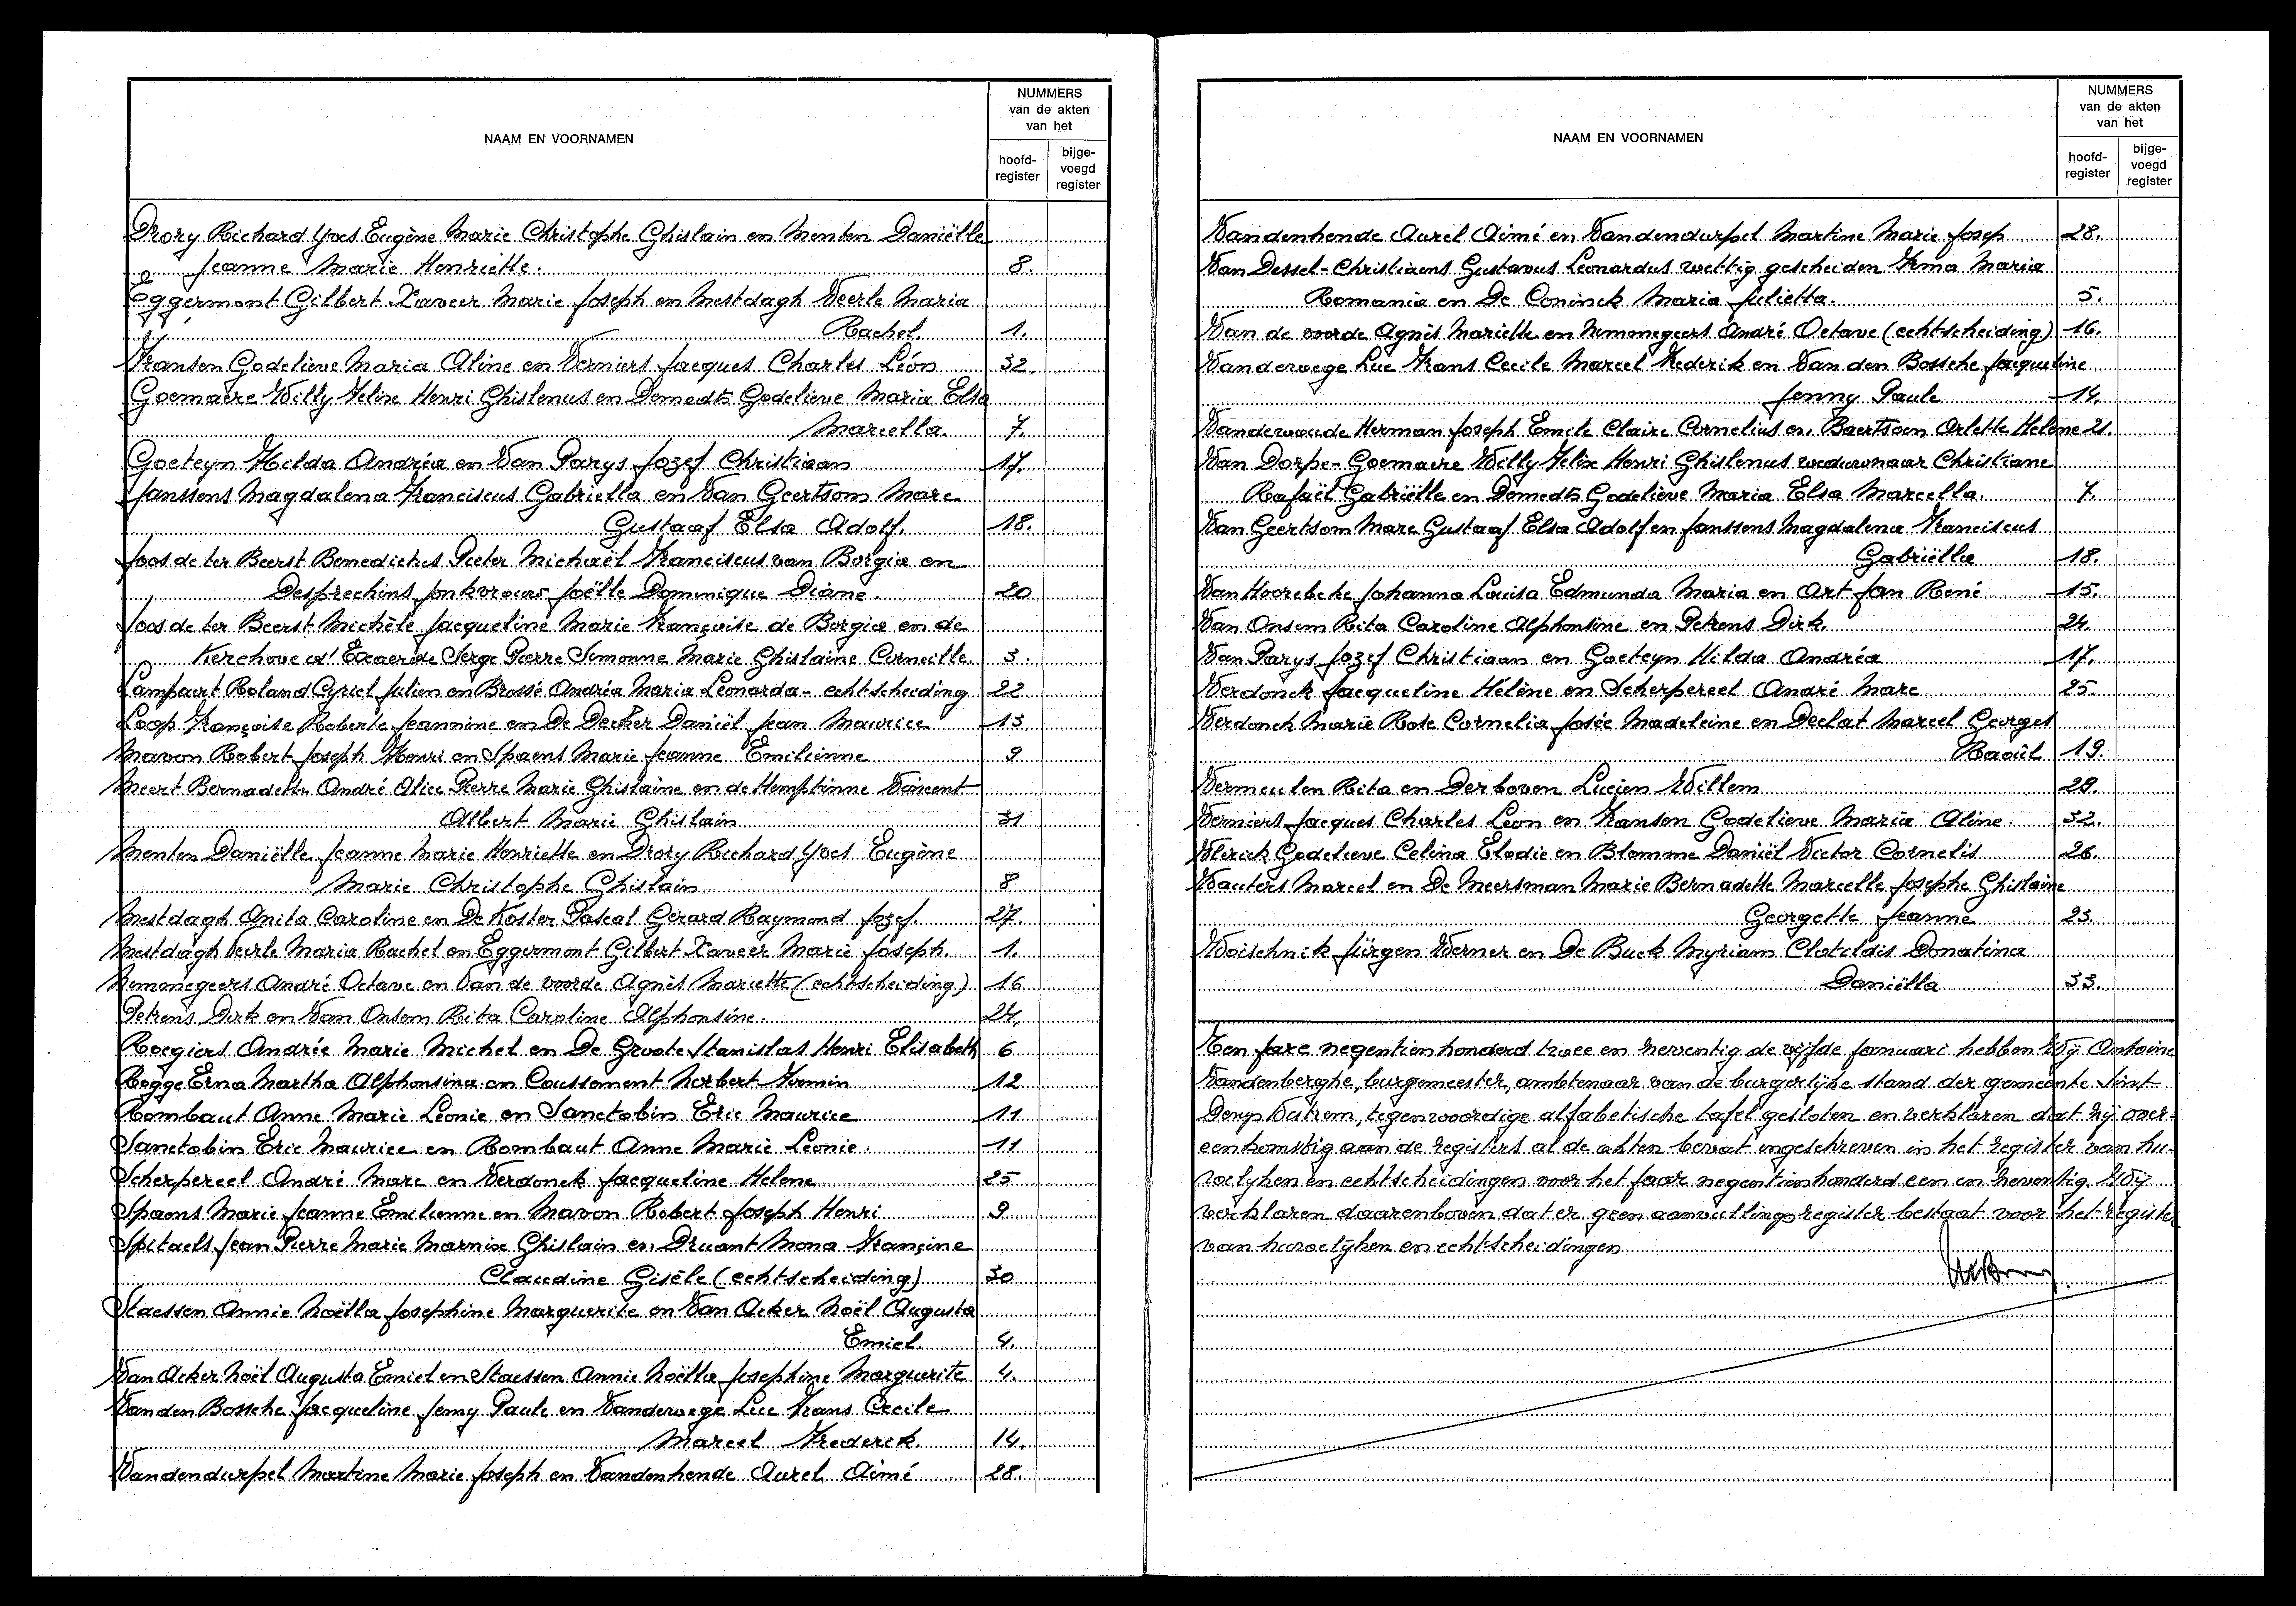 NAAM EN VOORNAMEN
NUMMERS
van de akten
van het
hoofd-
register
bijge-
voegd
register
Drory Richard Yves Eugène Marie Christophe Ghislain en Menten Daniëlle
Jeanne Marie Henriëtte. 8.
Eggermont Gilbert Xaveer Marie Joseph en Mestdagh Veerle Maria
Rachel. 1.
Fransen Godelieve Maria Aline en Verniers Jacques Charles Léon 32.
Goemaere Willy Felix Henri Ghislenus en Demedts Godelieve Maria Elsa
Marcella. 7.
Goeteyn Hilda Andréa en Van Parys Jozef Christiaan 17.
Janssens Magdalena Franciscus Gabriella en Van Geertsom Marc
Gustaaf Elsa Adolf. 18.
Joos de ter Beerst Benedictus Pieter Michaël Franciscus van Borgia en
Desprechins jonkvrouw Joëlle Dominique Diane. 20
Joos de ter Beerst Michèle Jacqueline Marie Françoise de Borgia en de
Kerchove d'Exaerde Serge Pierre Simonne Marie Ghislaine Corneille. 3.
Lampaert Roland Cyriel Julien en Brossé Andréa Maria Leonarda - echtscheiding 22
Loop Françoise Roberte Jeannine en De Decker Daniël Jean Maurice 13
Mavon Robert Joseph Henri en Spaens Marie Jeanne Emilienne 9
Meert Bernadette André Alice Pierre Marie Ghislaine en de Hemptinne Vincent
Albert Marie Ghislain 31
Menten Daniëlle Jeanne Marie Henriette en Drory Richard Yves Eugène
Marie Christophe Ghislain 8
Mestdagh Anita Caroline en De Koster Pascal Gerard Raymond Jozef. 27.
Mestdagh Veerle Maria Rachel en Eggermont Gilbert Xaveer Marie Joseph. 1.
Nemmegeers André Octave en Van de voorde Agnès Mariette (echtscheiding) 16
Petrens Dirk en Van Onsem Rita Caroline Alphonsine. 24.
Roegiers Andrée Marie Michel en De Groote Stanislas Henri Elisabeth 6
Rogge Erna Martha Alphonsina en Coussement Norbert Firmin 12
Rombaut Anne Marie Léonie en Sanctobin Eric Maurice 11
Sanctobin Eric Maurice en Rombaut Anne Marie Leonie. 11
Scherpereel André Marc en Verdonck Jacqueline Helene 25
Spaens Marie Jeanne Emilienne en Mavon Robert Joseph Henri 9
Spitaels Jean Pierre Marie Marnix Ghislain en Druant Mona Francine
Claudine Gisèle (echtscheiding) 30
Staessen Annie Noëlla Josephine Marguerite en Van Acker Noël Augusta
Emiel. 4.
Van Acker Noël Augusta Emiel en Staessen Annie Noëlla Josephine Marguerite 4.
Van den Bossche Jacqueline Jenny Paule en Vanderwege Luc Frans Cecile
Marcel Frederick. 14.
Vandendurpel Martine Marie Joseph en Vandenhende Aurel Aimé 28.
NAAM EN VOORNAMEN
NUMMERS
van de akten
van het
hoofd-
register
bijge-
voegd
register
Vandenhende Aurel Aimé en Vandendurpel Martine Marie Josep 28.
Van Dessel-Christiaens Gustavus Leonardus wettig gescheiden Irma Maria
Romania en De Coninck Maria Julietta. 5.
Van de voorde Agnès Mariette en Nemmegeers André Octave (echtscheiding) 16.
Vanderwege Luc Frans Cecile Marcel Frederik en Van den Bossche Jacqueline
Jenny Paule 14.
Vandewoude Herman Joseph Emile Claire Cornelius en Baertsoen Arlette Helene 21.
Van Dorpe-Goemaere Willy Felix Henri Ghislenus weduwnaar Christiane
Rafaël Gabriëlle en Demedts Godelieve Maria Elsa Marcella. 7.
Van Geertsom Marc Gustaaf Elsa Adolf en Janssens Magdalena Franciscus
Gabriëlla 18.
Van Hoorebeke Johanna Louisa Edmunda Maria en Art Jan René 15.
Van Onsem Rita Caroline Alphonsine en Petrens Dirk. 24.
Van Parys Jozef Christiaan en Goeteyn Hilda Andréa 17.
Verdonck Jacqueline Hélène en Scherpereel André Marc 25.
Verdonck Marie Rose Cornelia Josée Madeleine en Declat Marcel Georges
Raoûl 19.
Vermeulen Rita en Derboven Lucien Willem 29.
Verniers Jacques Charles Leon en Fransen Godelieve Maria Aline. 32.
Vlerick Godelieve Celina Elodie en Blomme Daniël Victor Cornelis 26.
Wauters Marcel en De Meersman Marie Bernadette Marcelle Josephe Ghislaine
Georgette Jeanne 23.
Woischnik Jürgen Werner en De Buck Myriam Clotildis Donatina
Daniëlla 33.
Ten jare negentienhonderd twee en neventig de vijfde januari hebben Wij Antoine
Vandenberghe, burgemeester, ambtenaar van de burgerlijke stand der gemeente Sint-
DenysВатrem, tegenwoordige alfabetische tafel gesloten en verklaren dat zij over-
eenkomstig aan de registers al de akten bevat ingeschreven in het register van hu-
welyken en echtscheidingen voor het jaar negentienhonderd een en neventig. Wij
verklaren daarenboven dat er geen aanvullingsregister bestaat voor het register
van huwelyken en echtscheidingen